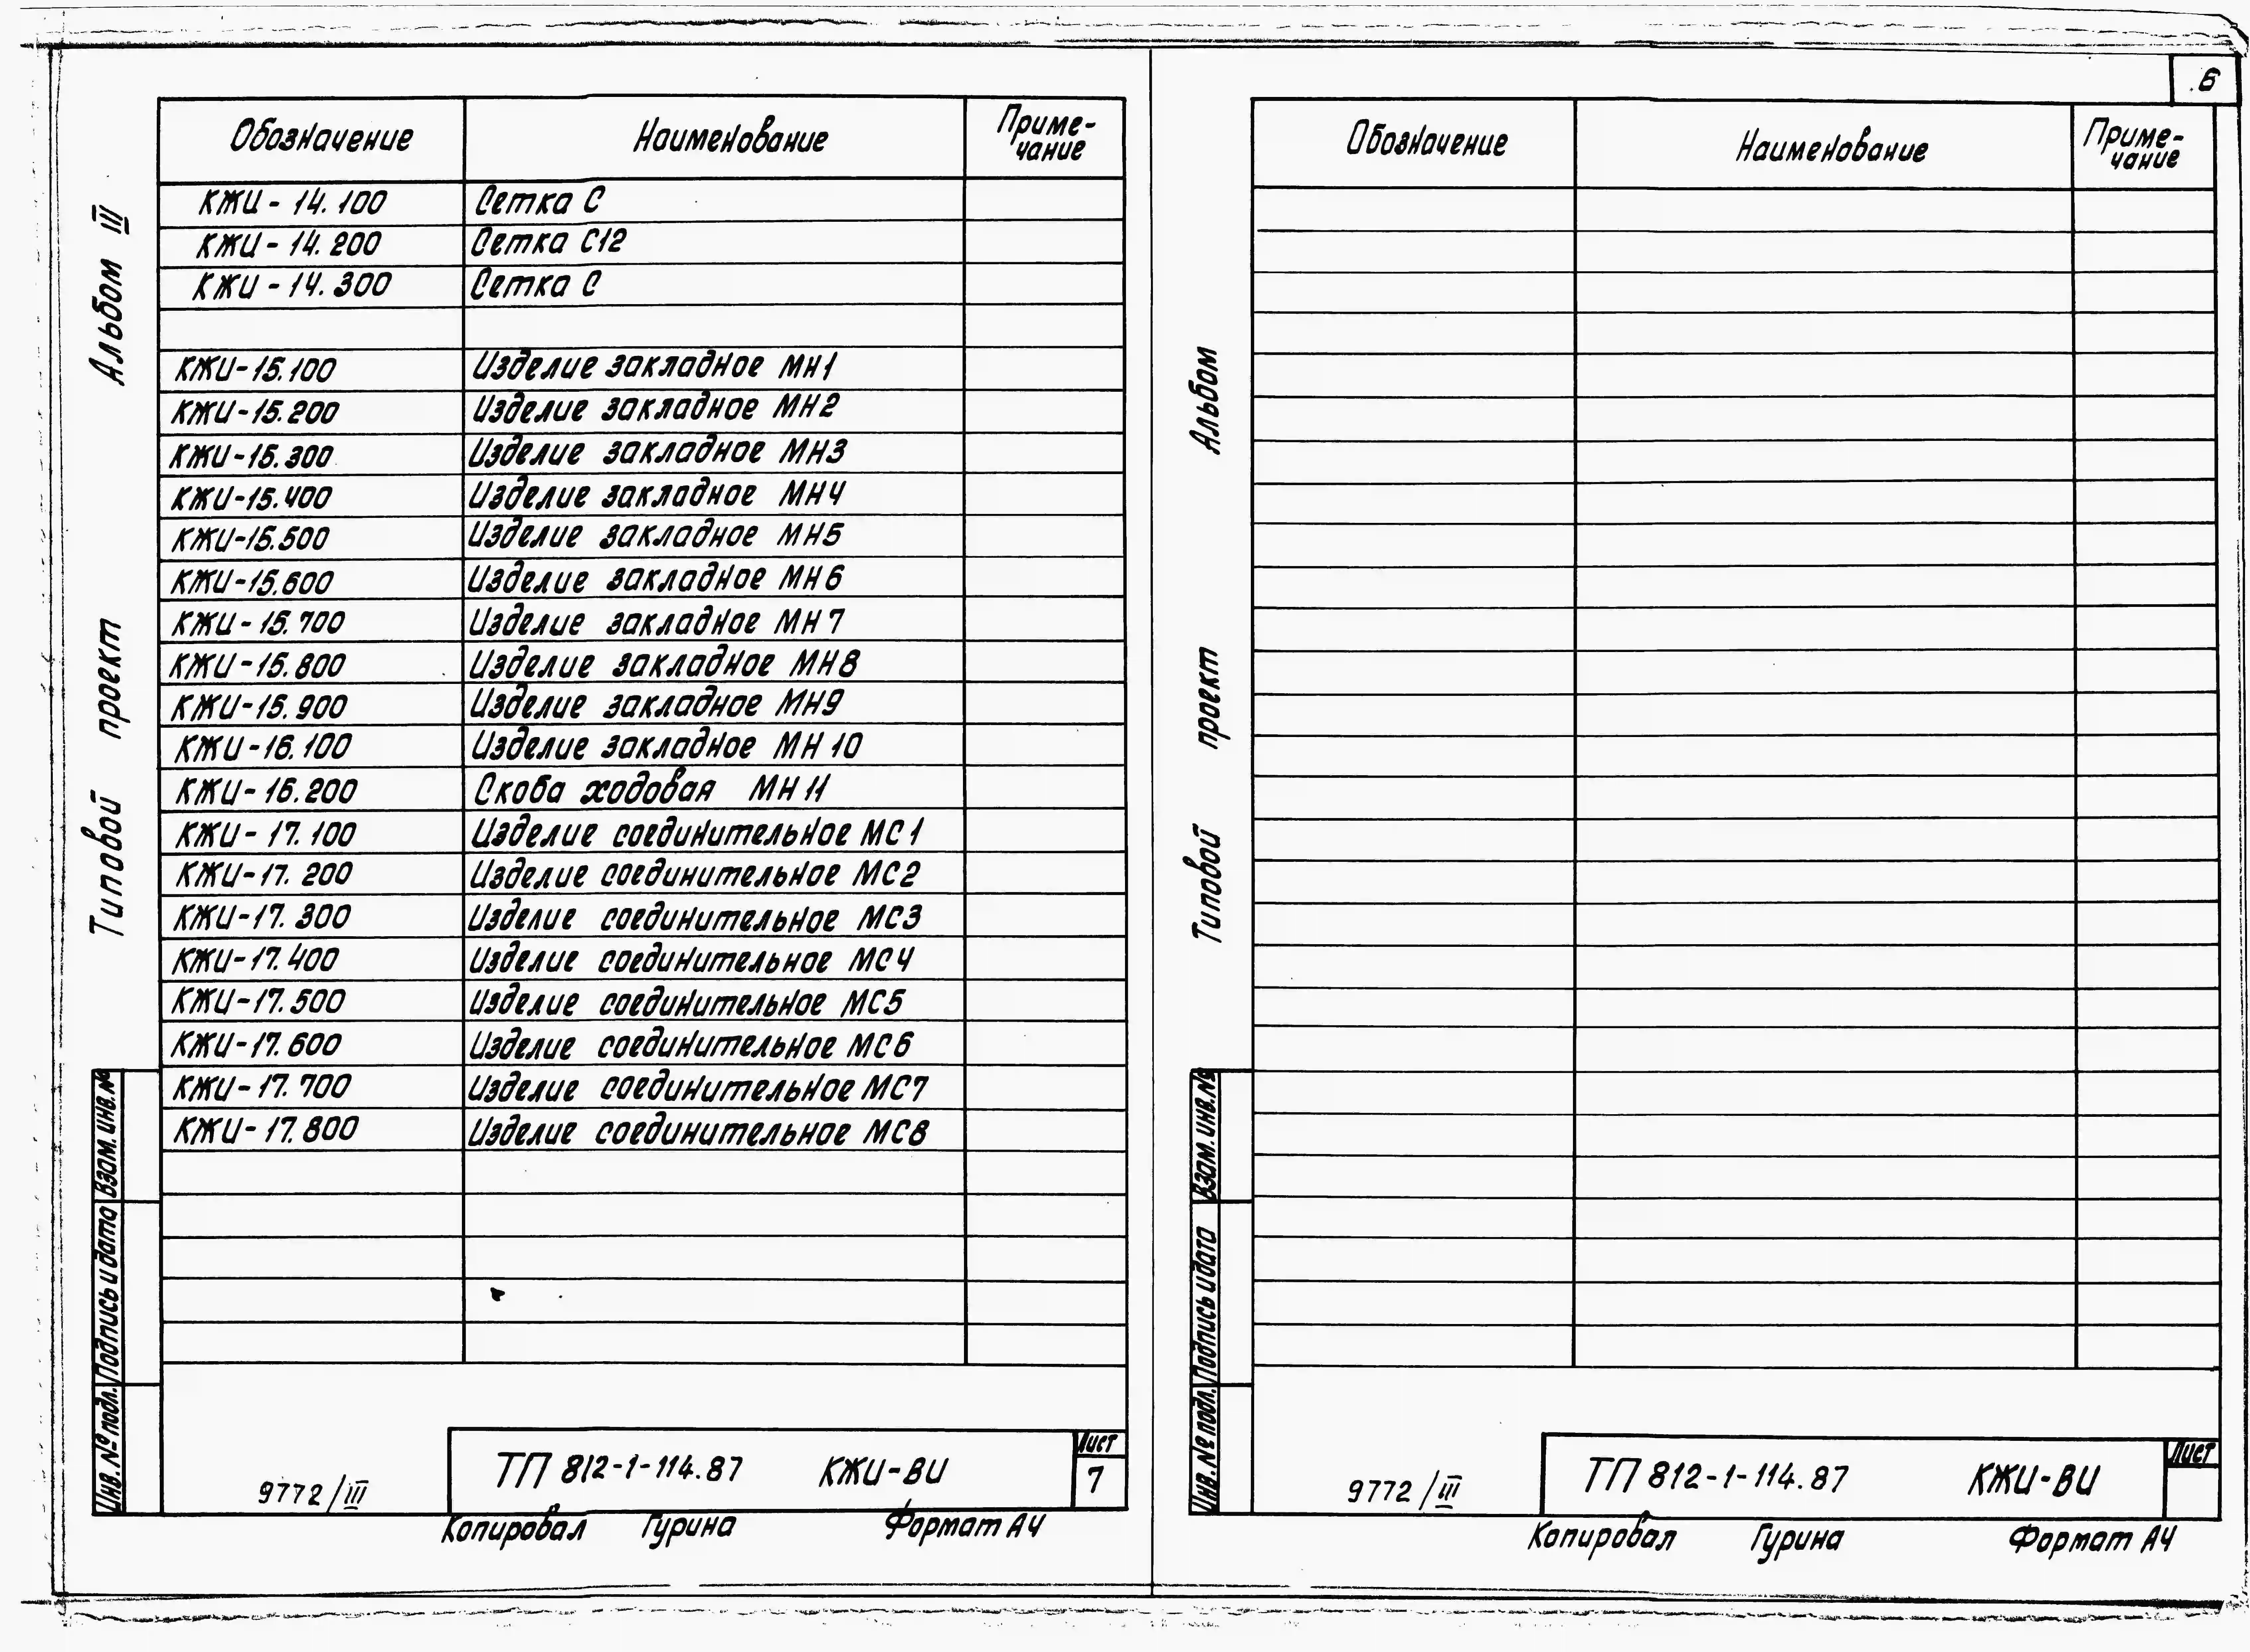 6
Альбом III
Типовой проект
Обозначение Наименование Приме-
чание
КЖИ-14.100 Сетка С
КЖИ-14.200 Сетка С12
КЖИ-14.300 Сетка С
КЖИ-15.100 Изделие закладное МН1
КЖИ-15.200 Изделие закладное МН2
КЖИ-15.300 Изделие закладное МН3
КЖИ-15.400 Изделие закладное МН4
КЖИ-15.500 Изделие закладное МН5
КЖИ-15.600 Изделие закладное МН6
КЖИ-15.700 Изделие закладное МН7
КЖИ-15.800 Изделие закладное МН8
КЖИ-15.900 Изделие закладное МН9
КЖИ-16.100 Изделие закладное МН10
КЖИ-16.200 Скоба ходовая МН11
КЖИ-17.100 Изделие соединительное МС1
КЖИ-17.200 Изделие соединительное МС2
КЖИ-17.300 Изделие соединительное МС3
КЖИ-17.400 Изделие соединительное МС4
КЖИ-17.500 Изделие соединительное МС5
КЖИ-17.600 Изделие соединительное МС6
КЖИ-17.700 Изделие соединительное МС7
КЖИ-17.800 Изделие соединительное МС8
Взам. инв. №
Подпись и дата
Инв. № подл.
9772/III
ТП 812-1-114.87 КЖИ-ВИ
Лист
7
Копировал Гурина Формат А4
Альбом
Типовой проект
Обозначение Наименование Приме-
чание
Взам. инв. №
Подпись и дата
Инв. № подл.
9772/III
ТП 812-1-114.87 КЖИ-ВИ
Лист
Копировал Гурина Формат А4